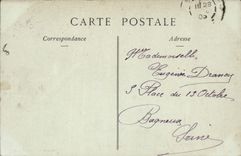 CARTE POSTALE
Correspondance
Adresse
Mademoiselle
Eugénie Drancy
3 Place du 13 Octobre
Bagneux
Seine